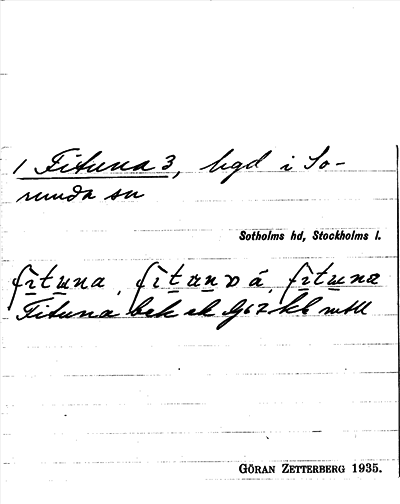 1 Fituna 3, bgd i So-
runda sn
Sotholms hd, Stockholms l.
fituna, fitunа
Fituna bek ek
GÖRAN ZETTERBERG 1935.